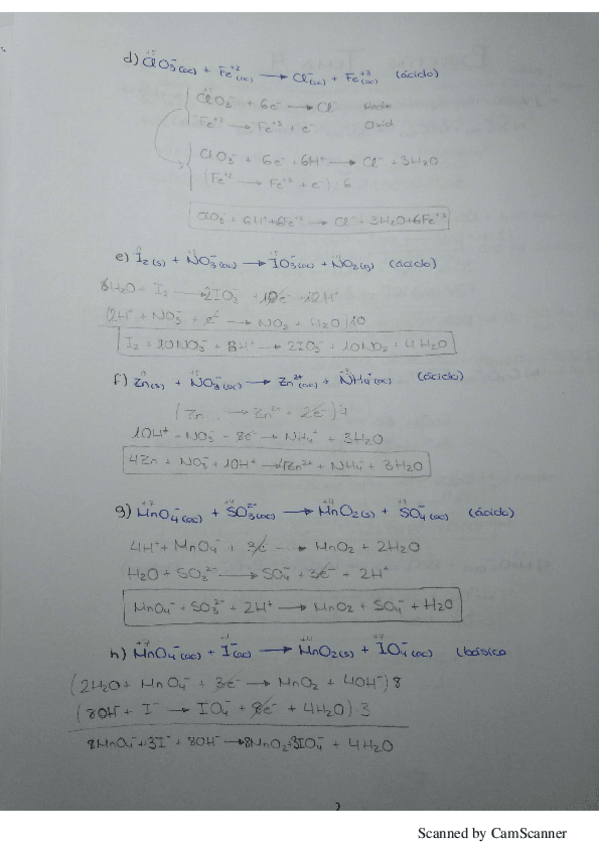 d) ClO₃⁻(ac) + Fe⁺²(ac) → Cl⁻(ac) + Fe⁺³(ac) (ácido)
ClO₃⁻ + 6e⁻ → Cl⁻
Fe⁺² → Fe⁺³ + e⁻ Oxid
ClO₃⁻ + 6e⁻ + 6H⁺ → Cl⁻ + 3H₂O
(Fe⁺² → Fe⁺³ + e⁻)·6
ClO₃⁻ + 6H⁺ + 6Fe⁺² → Cl⁻ + 3H₂O + 6Fe⁺³
e) I₂(s) + NO₃⁻(ac) → IO₃⁻(ac) + NO₂(g) (ácido)
6H₂O + I₂ → 2IO₃⁻ + 10e⁻ + 12H⁺
(2H⁺ + NO₃⁻ + e⁻ → NO₂ + H₂O)10
I₂ + 10NO₃⁻ + 8H⁺ → 2IO₃⁻ + 10NO₂ + 4H₂O
f) Zn(s) + NO₃⁻(ac) → Zn²⁺(ac) + NH₄⁺(ac) (ácido)
(Zn → Zn²⁺ + 2e⁻)4
10H⁺ + NO₃⁻ + 8e⁻ → NH₄⁺ + 3H₂O
4Zn + NO₃⁻ + 10H⁺ → 4Zn²⁺ + NH₄⁺ + 3H₂O
g) MnO₄⁻(ac) + SO₃²⁻(ac) → MnO₂(s) + SO₄⁻(ac) (ácido)
4H⁺ + MnO₄⁻ + 3e⁻ → MnO₂ + 2H₂O
H₂O + SO₃²⁻ → SO₄⁻ + 3e⁻ + 2H⁺
MnO₄⁻ + SO₃²⁻ + 2H⁺ → MnO₂ + SO₄⁻ + H₂O
h) MnO₄⁻(ac) + I⁻(ac) → MnO₂(s) + IO₄⁻(ac) (básico
(2H₂O + MnO₄⁻ + 3e⁻ → MnO₂ + 4OH⁻)8
(8OH⁻ + I⁻ → IO₄⁻ + 8e⁻ + 4H₂O)·3
8MnO₄⁻ + 3I⁻ + 8OH⁻ → 8MnO₂ + 3IO₄⁻ + 4H₂O
Scanned by CamScanner